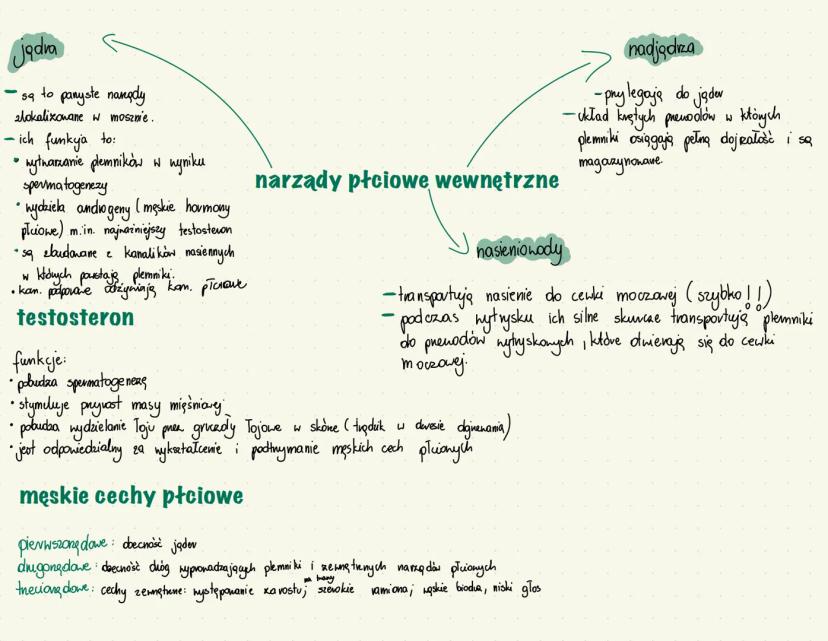 jądra
– są to parzyste narządy
zlokalizowane w mosznie.
– ich funkcja to:
• wytwarzanie plemników w wyniku
spermatogenezy
• wydziela androgeny (męskie hormony
płciowe) m.in. najważniejszy testosteron
• są zbudowane z kanalików nasiennych
w których powstają plemniki.
• kom. podporowe odżywiają kom. płciowe
nadjądrza
– przylegają do jąder
– układ krętych przewodów w których
plemniki osiągają pełną dojrzałość i są
magazynowane.
narządy płciowe wewnętrzne
nasieniowody
– transportują nasienie do cewki moczowej (szybko!!)
– podczas wytrysku ich silne skurcze transportują plemniki
do przewodów wytryskowych, które otwierają się do cewki
moczowej.
testosteron
funkcje:
• pobudza spermatogenezę
• stymuluje przyrost masy mięśniowej
• pobudza wydzielanie łoju przez gruczoły łojowe w skórze (trądzik w okresie dojrzewania)
• jest odpowiedzialny za wykształcenie i podtrzymanie męskich cech płciowych
męskie cechy płciowe
pierwszorzędowe: obecność jąder
drugorzędowe: obecność dróg wyprowadzających plemniki i zewnętrznych narządów płciowych
trzeciorzędowe: cechy zewnętrzne: występowanie zarostu na twarzy, szerokie ramiona, wąskie biodra, niski głos